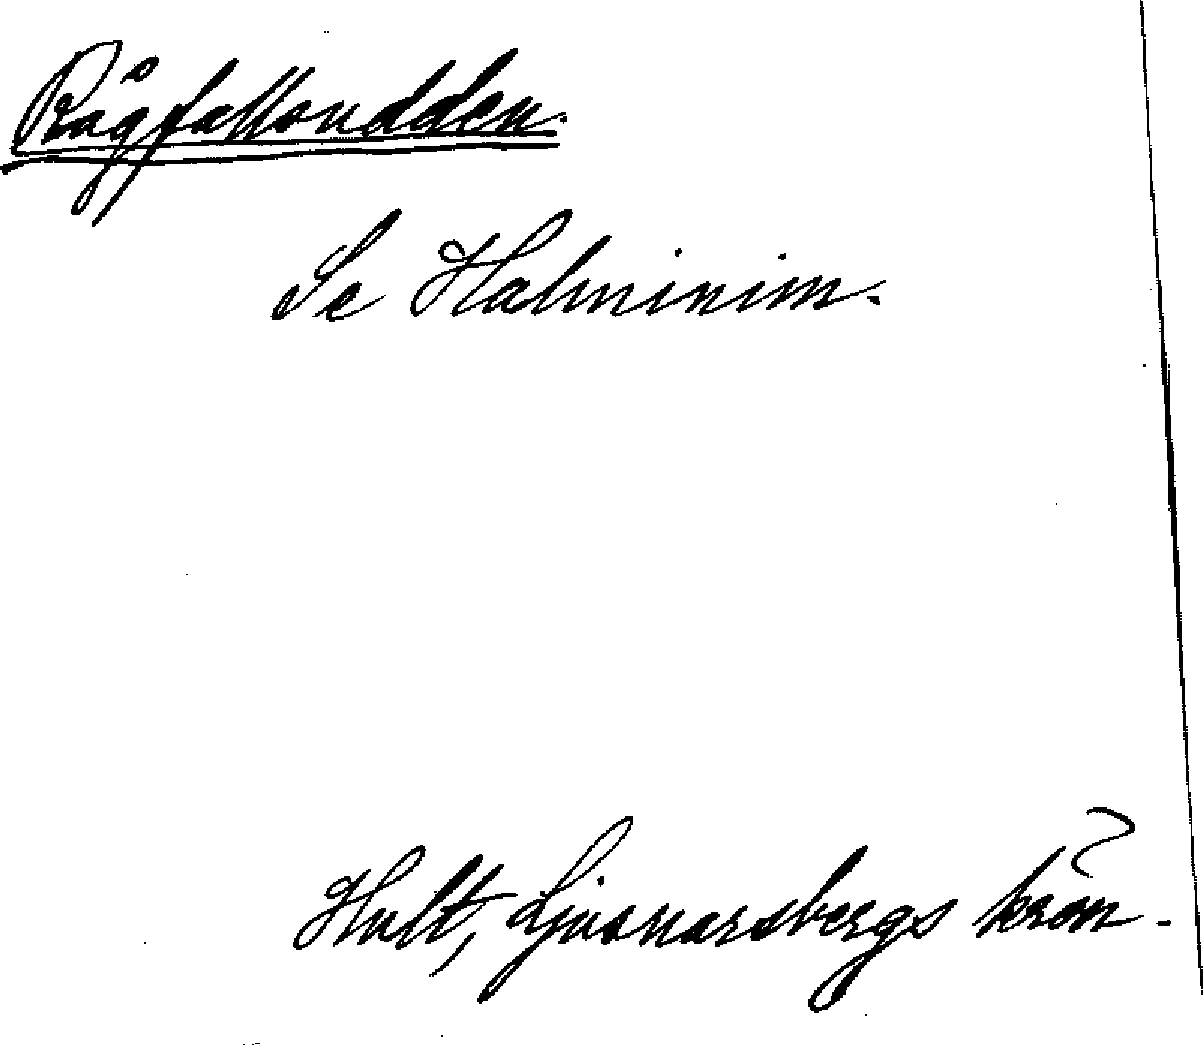 Rågfallsudden.
Se Halminim.
Hult, Ljusnarsbergs krön.